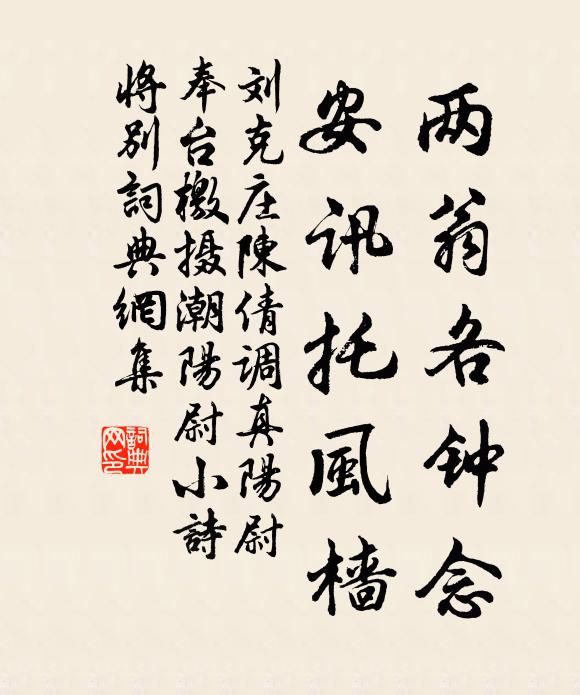 两翁各钟念
安讯托風樯
刘克庄陳倩调真陽尉
奉台檄摄潮陽尉小詩
将别詞典網集
詞典
网印